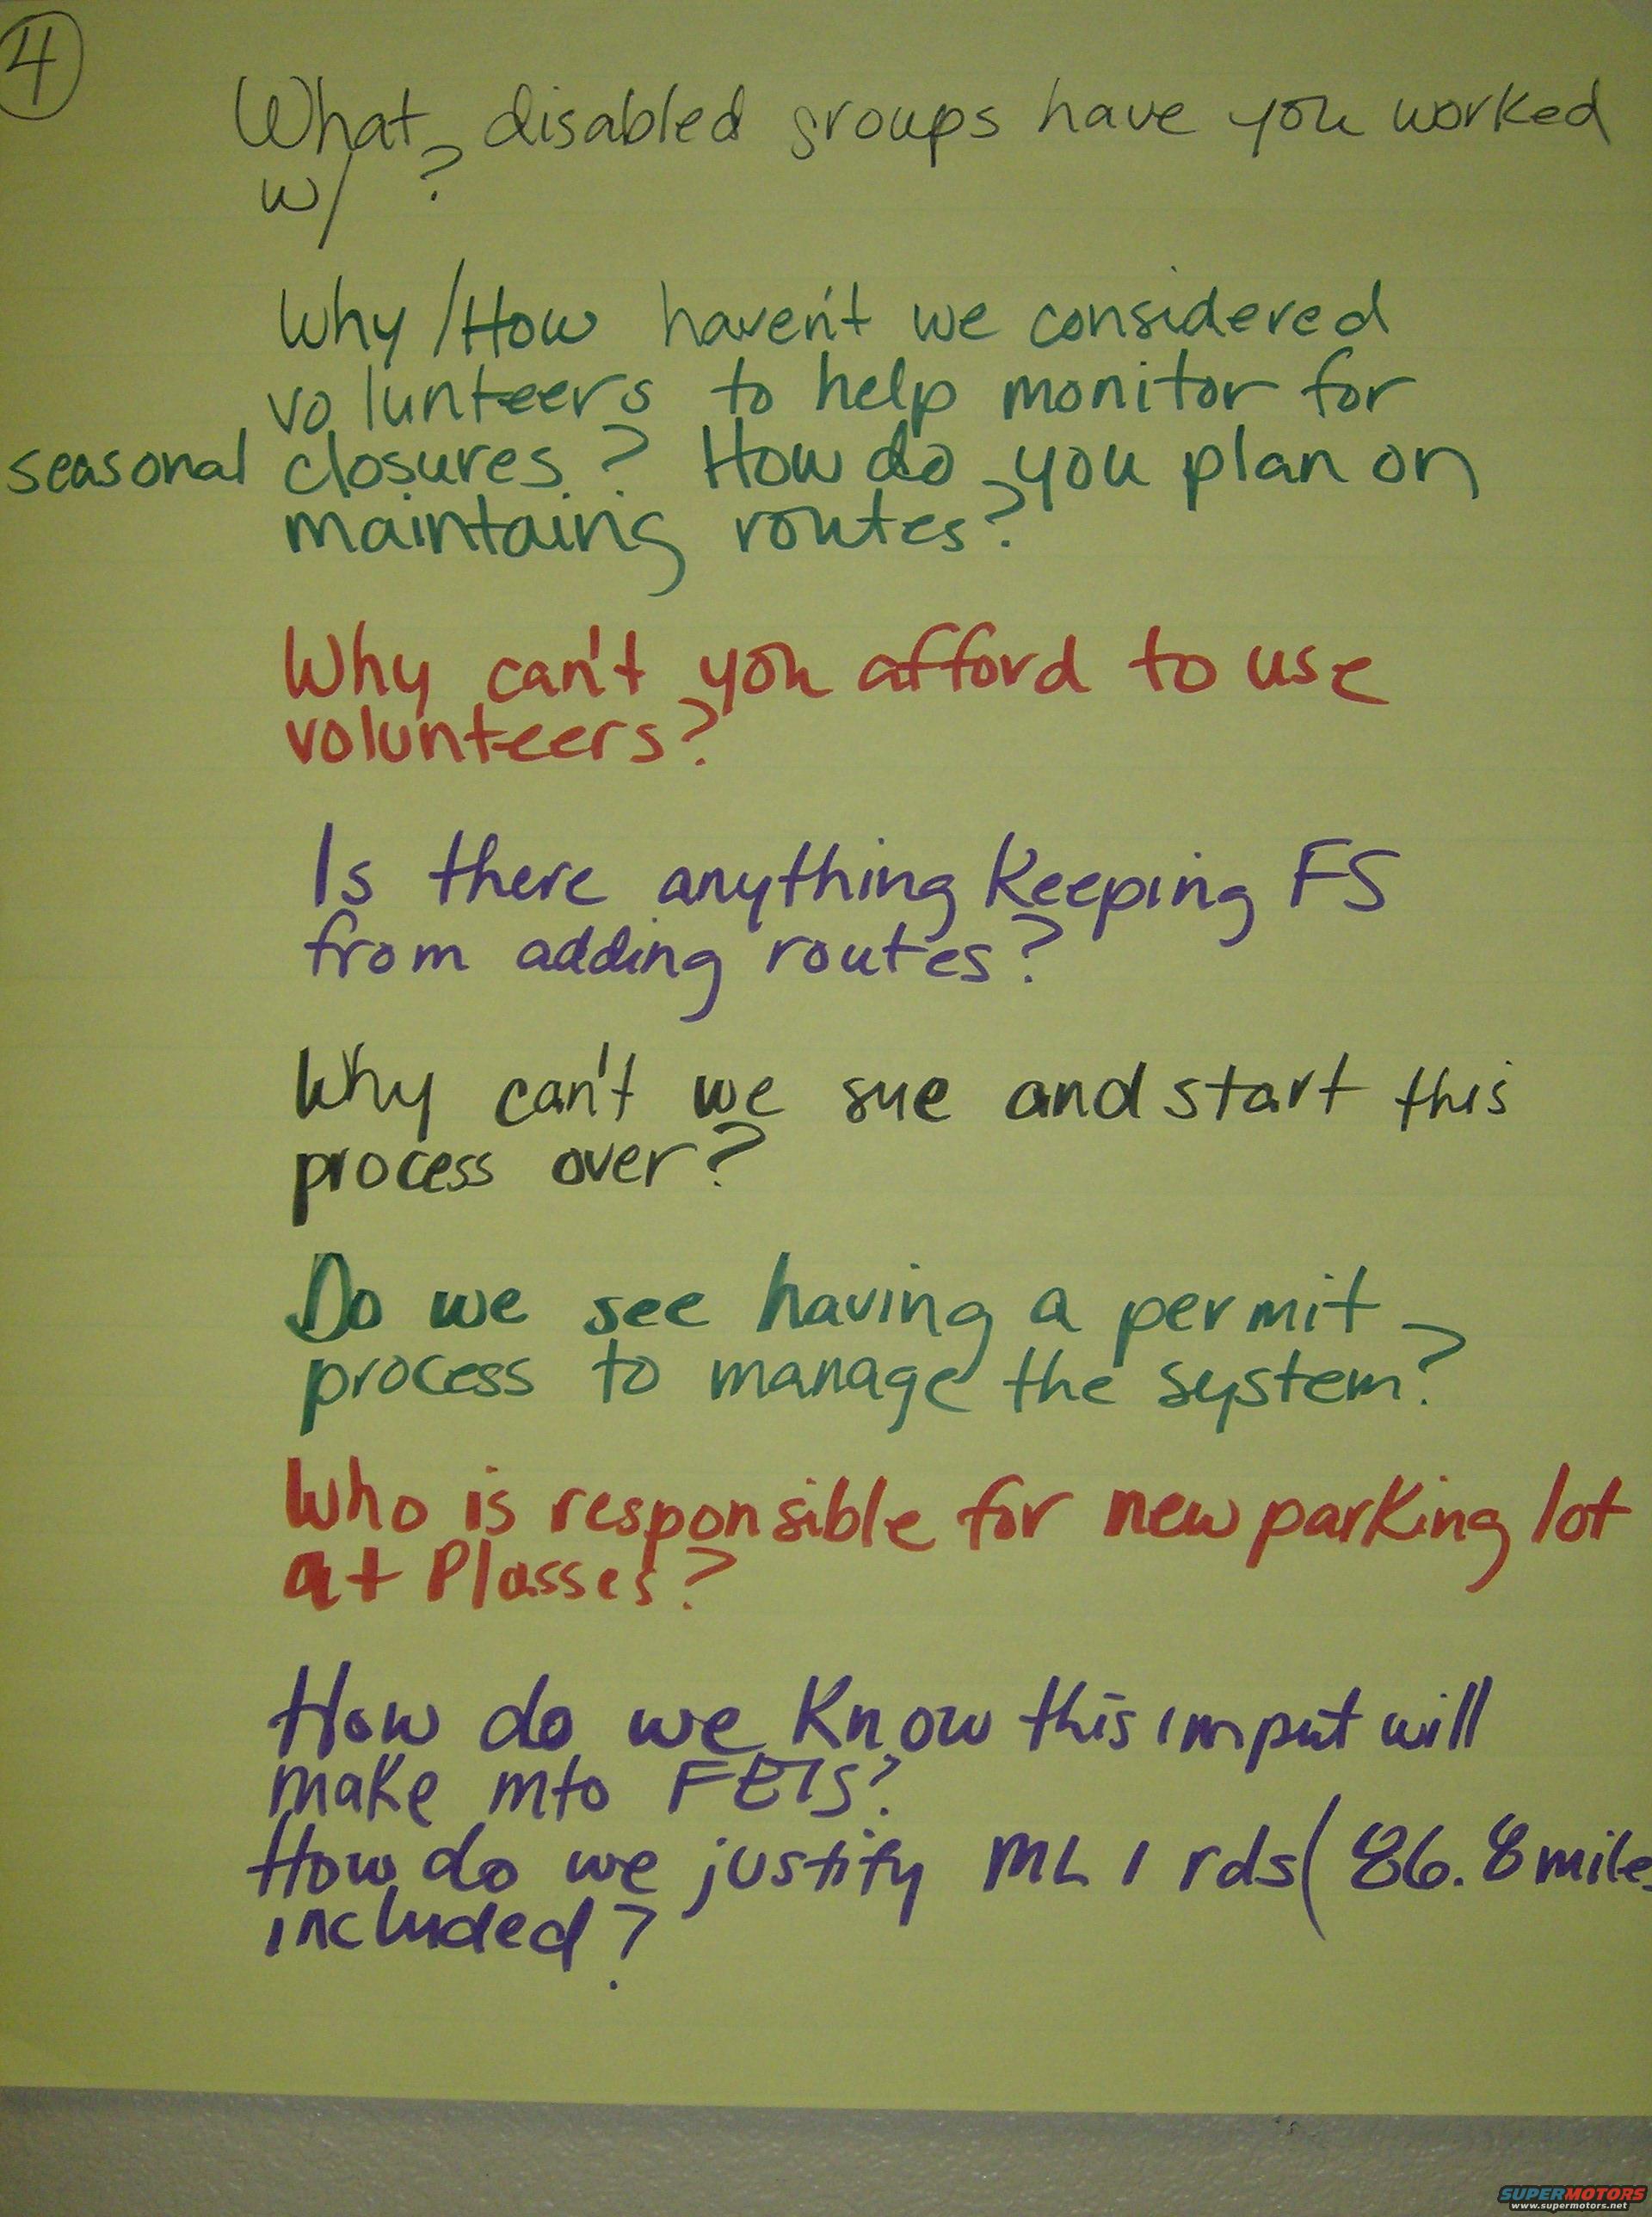 4
What disabled groups have you worked
w/ ?
Why/How haven't we considered
volunteers to help monitor for
seasonal closures? How do you plan on
maintaing routes?
Why can't you afford to use
volunteers?
Is there anything keeping FS
from adding routes?
Why can't we sue and start this
process over?
Do we see having a permit
process to manage the system?
Who is responsible for new parking lot
at Plasses?
How do we know this imput will
make into FEIS?
How do we justify ML 1 rds (86.8 miles
included?
SUPERMOTORS
www.supermotors.net